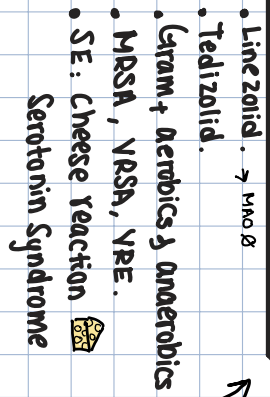 • Linezolid. → MAO Ø
• Tedizolid.
• Gram + aerobics y anaerobics
• MRSA, VRSA, VRE.
• SE: Cheese reaction
Serotonin Syndrome